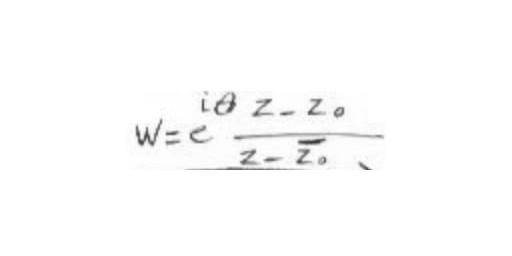 W = e^{iθ} \frac{z - z_0}{z - \overline{z_0}}